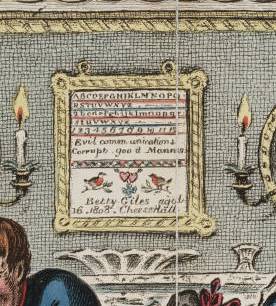 ABCDEFGHIKLMNOPQ
RSTUVWXYZ
abcdefghijklmnopq
rstuvwxyz
1 2 3 4 5 6 7 8 9 10 11 12
Evil communications
Corrupt good Manners
Betty Giles aged
16. 1808. Cheese Hall